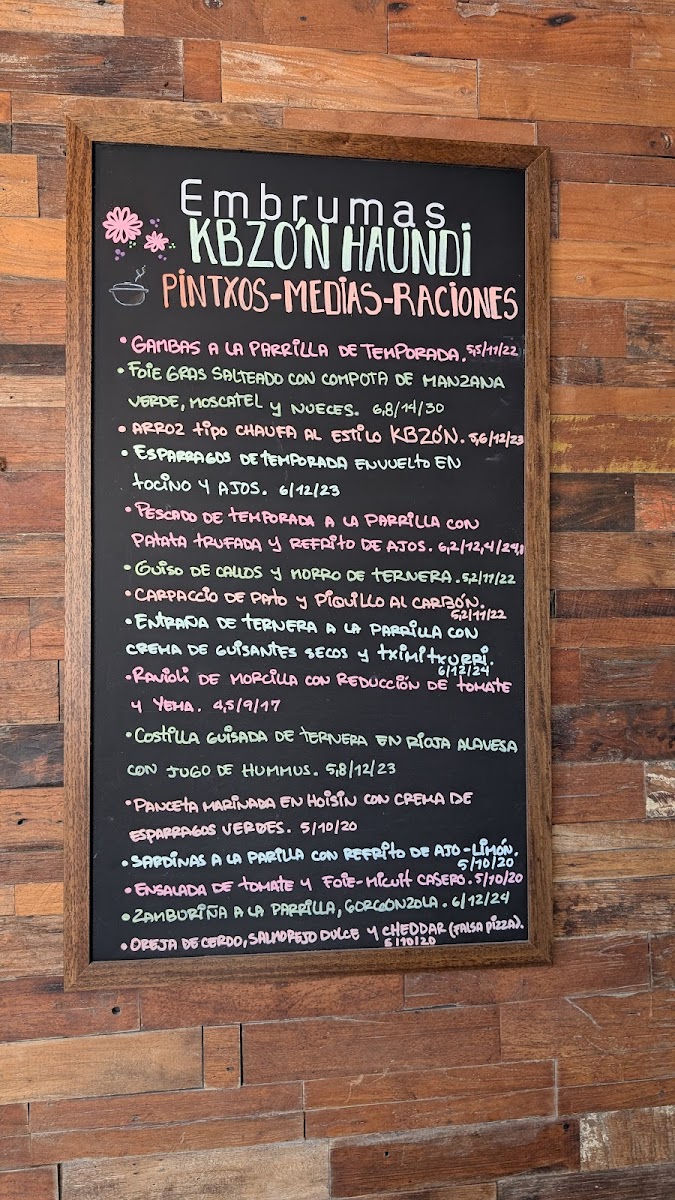 Embrumas
KBZO'N HAUNDI
PINTXOS-MEDIAS-RACIONES
• GAMBAS A LA PARRILLA DE TEMPORADA. 5,5/11/22
• FOIE GRAS SALTEADO CON COMPOTA DE MANZANA
VERDE, MOSCATEL Y NUECES. 6,8/14/30
• ARROZ TIPO CHAUFA AL ESTILO KBZÓN. 5,6/12/23
• ESPARRAGOS DE TEMPORADA ENVUELTO EN
TOCINO Y AJOS. 6/12/23
• PESCADO DE TEMPORADA A LA PARRILLA CON
PATATA TRUFADA Y REFRITO DE AJOS. 6,2/12,4/24,
• GUISO DE CALLOS Y MORRO DE TERNERA. 5,2/11/22
• CARPACCIO DE PATO Y PIQUILLO AL CARBÓN.
5,2/11/22
• ENTRAÑA DE TERNERA A LA PARRILLA CON
CREMA DE GUISANTES SECOS Y TXIMITXURRI.
6/12/24
• RAVIOLI DE MORCILLA CON REDUCCIÓN DE TOMATE
Y YEMA. 4,5/9/17
• COSTILLA GUISADA DE TERNERA EN RIOJA ALAVESA
CON JUGO DE HUMMUS. 5,8/12/23
• PANCETA MARINADA EN HOISIN CON CREMA DE
ESPARRAGOS VERDES. 5/10/20
• SARDINAS A LA PARILLA CON REFRITO DE AJO-LIMÓN.
5/10/20
• ENSALADA DE TOMATE Y FOIE-MICUIT CASERO. 5/10/20
• ZAMBURIÑA A LA PARRILLA, GORGONZOLA. 6/12/24
• OREJA DE CERDO, SALMOREJO DULCE Y CHEDDAR (FALSA PIZZA).
5/10/20